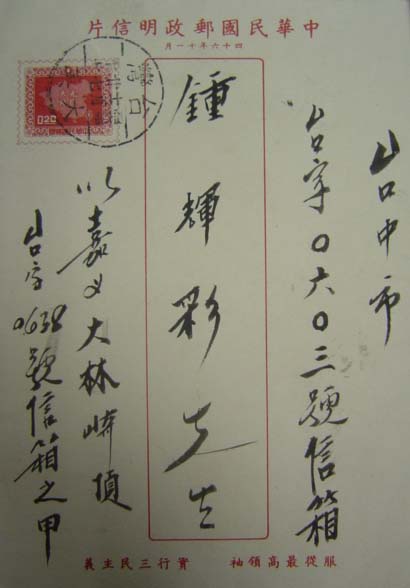 中華民國郵政明信片
四十六年十一月
台中市
台字〇六〇三號信箱
鍾輝彩先生
嘉义大林崎頂
台字0638號信箱之甲
0.20
服從最高領袖 實行三民主義